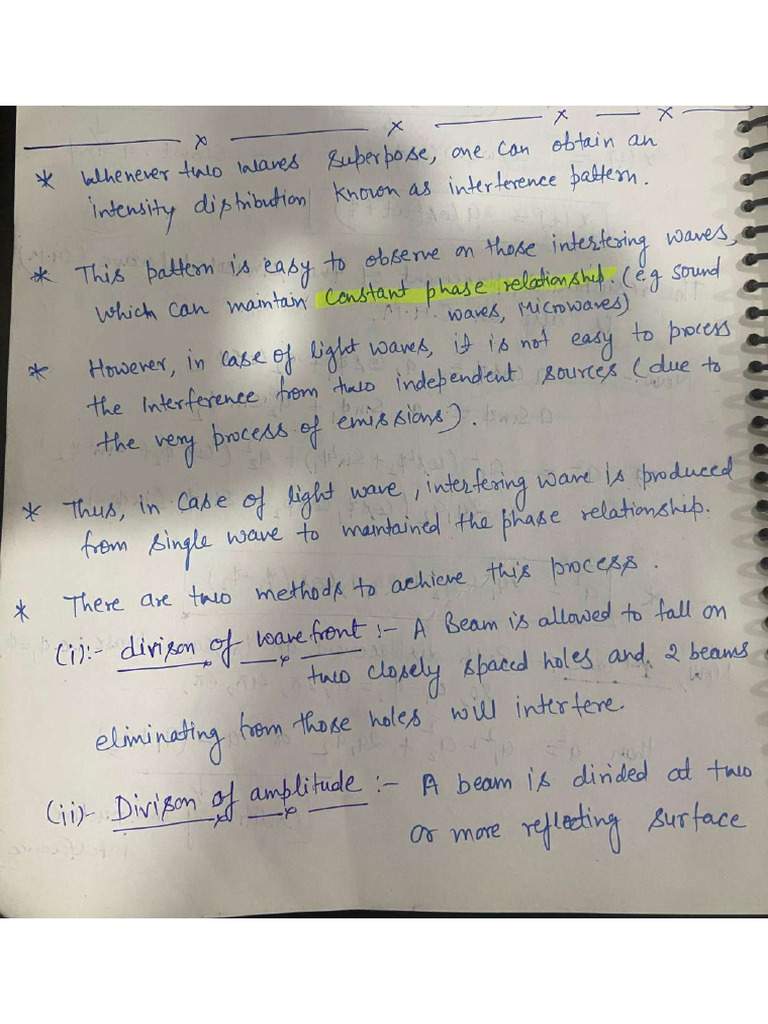 * Whenever two waves superpose, one can obtain an
intensity distribution known as interference pattern.
* This pattern is easy to observe on those interfering waves,
which can maintain constant phase relationship (e.g sound
waves, Microwaves)
* However, in case of light waves, it is not easy to process
the Interference from two independent sources (due to
the very process of emissions).
* Thus, in case of light wave, interfering wave is produced
from single wave to maintained the phase relationship.
* There are two methods to achieve this process.
(i):- divison of wavefront :- A Beam is allowed to fall on
two closely spaced holes and 2 beams
eliminating from those holes will interfere.
(ii)- Divison of amplitude :- A beam is divided at two
or more reflecting surface